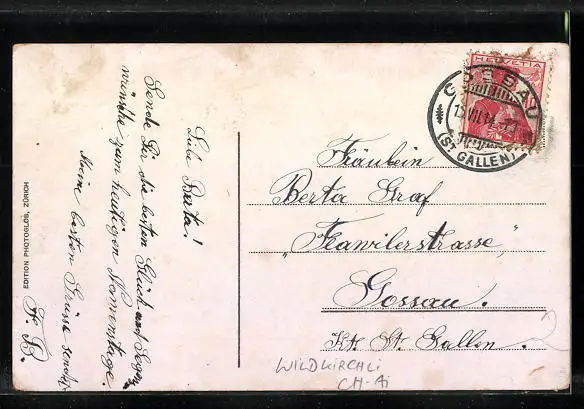 Liebe Berta!
Sende Dir die besten Glück und Segens
wünsche zum heutigen Namenstage
Meine besten Grüsse sendet
F. B.
EDITION PHOTOGLOB, ZÜRICH
HELVETIA
GOSSAU
VII.14
(ST. GALLEN)
Fräulein
Berta Graf
"Flawilerstrasse"
Gossau.
Kt. St. Gallen.
WILDKIRCHLI
CH-Ai